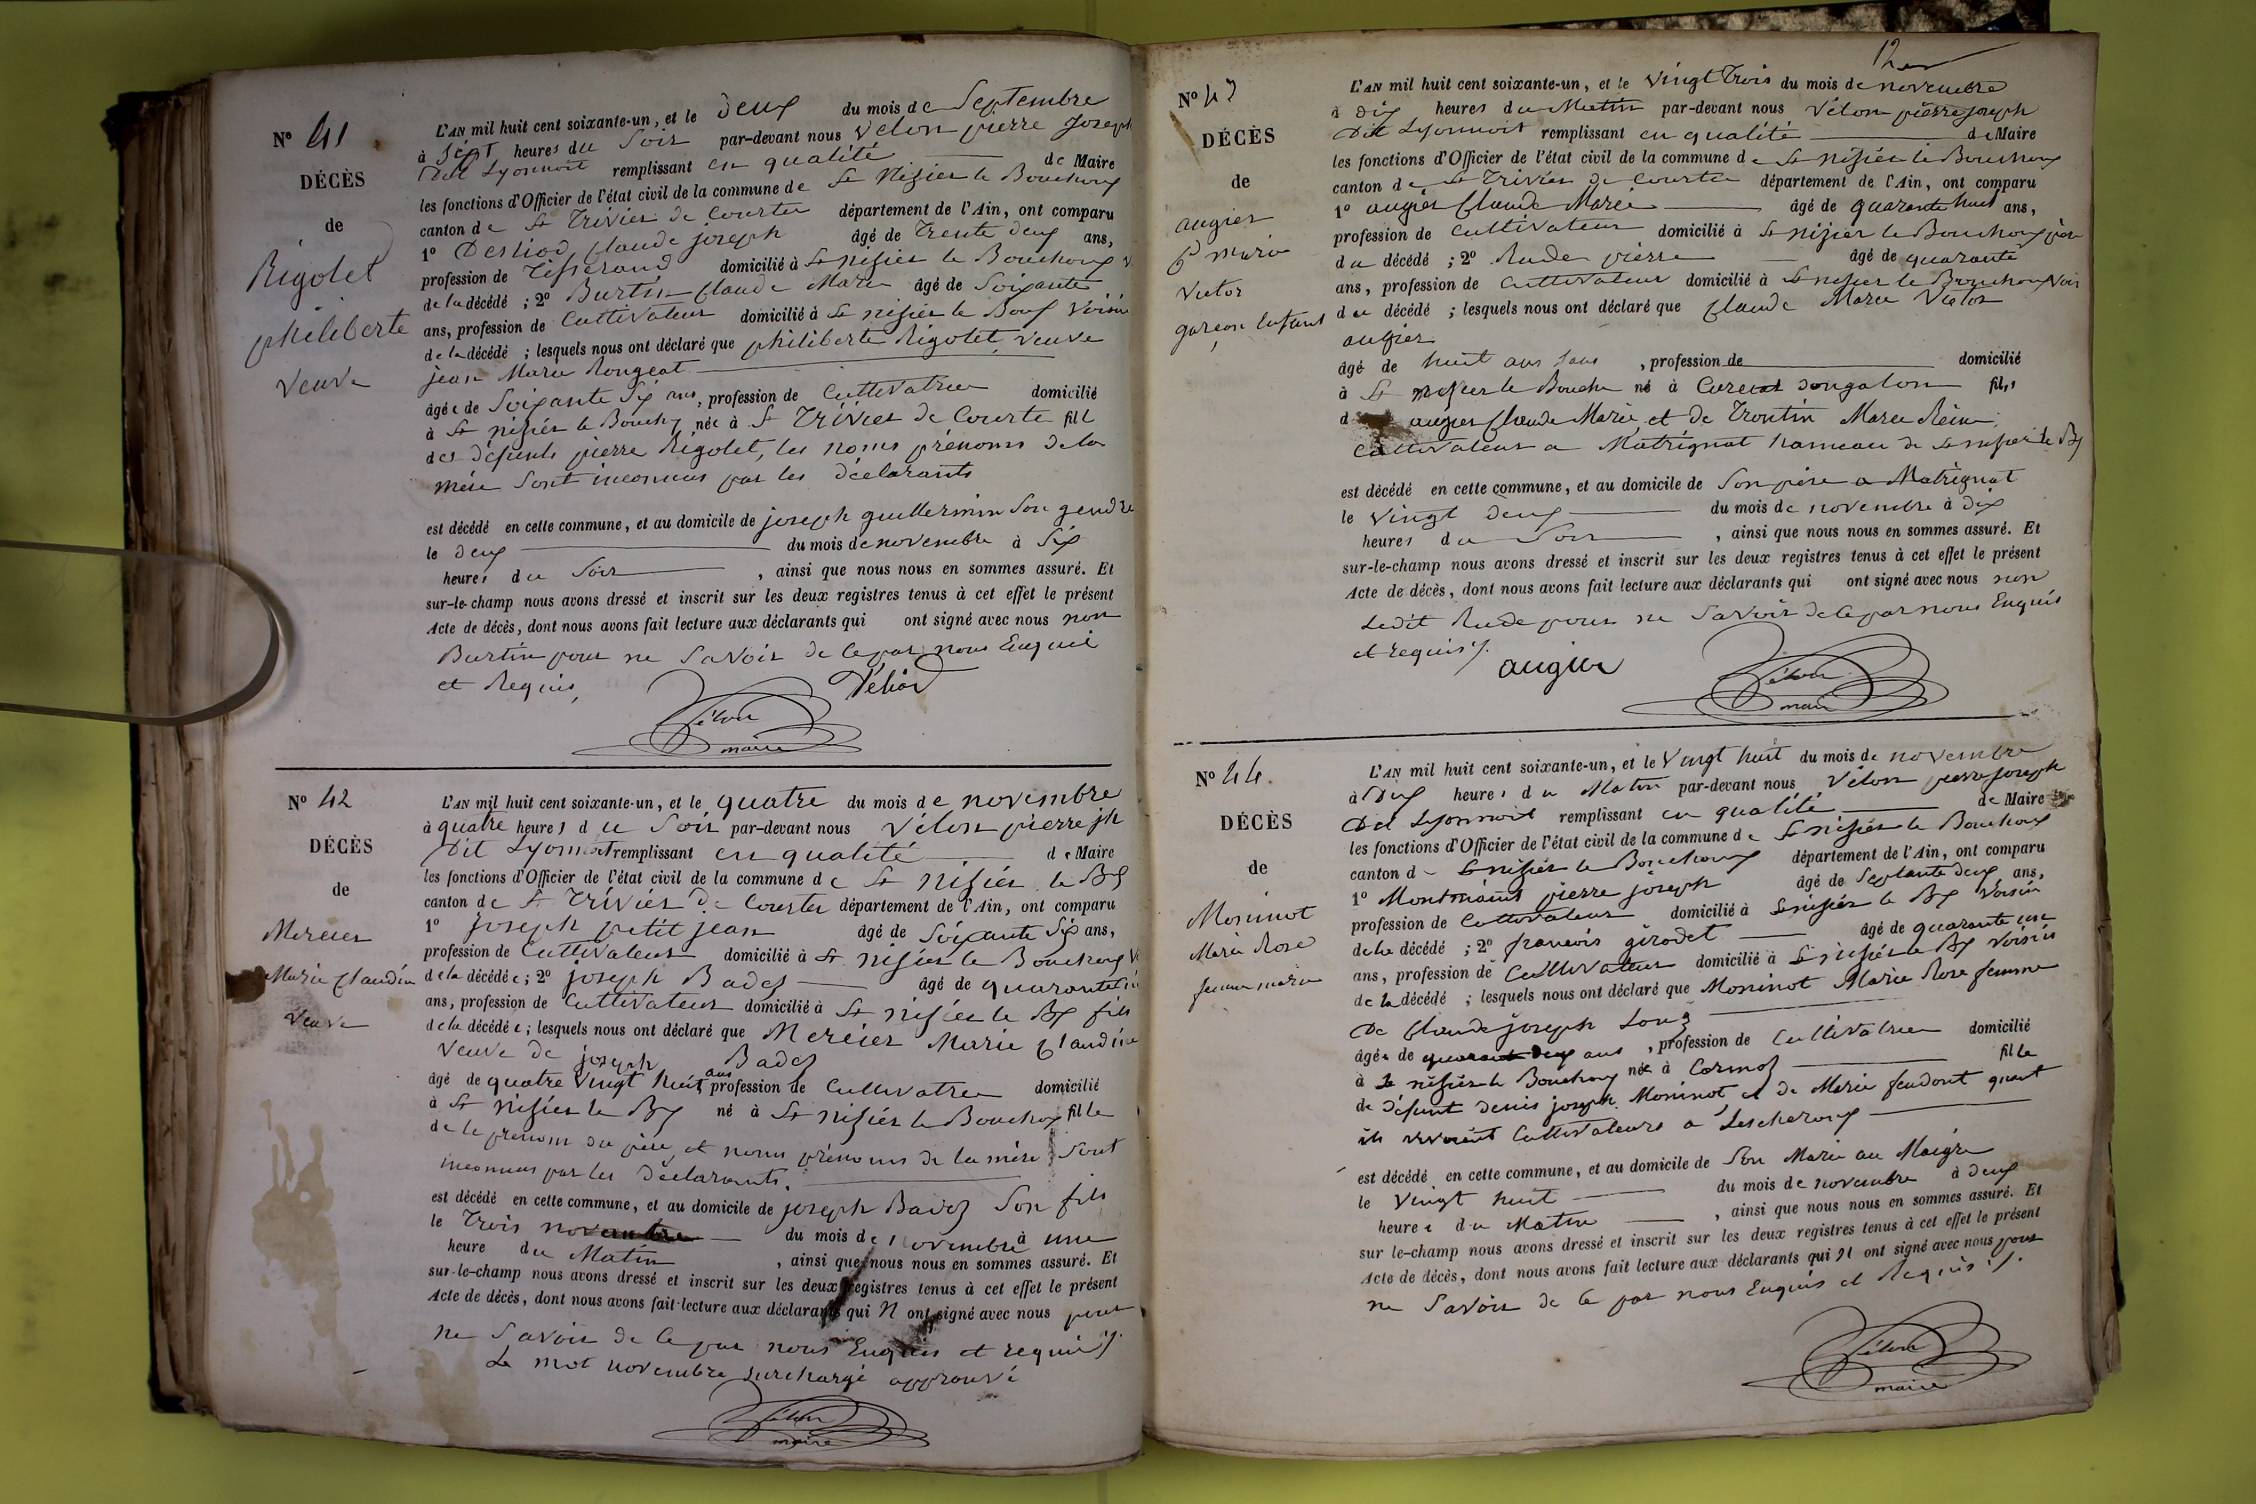 N° 41
DÉCÈS
de
Rigolet
philiberte
veuve
L'AN mil huit cent soixante-un, et le deux du mois de Septembre
à Sept heures du Soir par-devant nous Vélon pierre Joseph
Dit Lyonnoit remplissant en qualité de Maire
les fonctions d'Officier de l'état civil de la commune de St Nisier le Bouchoux
canton de St Trivier de Courte département de l'Ain, ont comparu
1° claude joseph âgé de Trente deux ans,
profession de Tisserand domicilié à St nisier le Bouchoux
de la décédé ; 2° Burtin claude Marie âgé de Soixante
ans, profession de Cultivateur domicilié à St nisier le Boux Voisin
de la décédé ; lesquels nous ont déclaré que philiberte Rigolet veuve
jean Marie Rongeat
âgée de Soixante Six ans, profession de Cultivatrice domicilié
à St nisier le Bouchx née à St Trivier de Courte fill
des défunts pierre Rigolet, les noms prénoms de la
mère Sont inconnus par les déclarants
est décédé en cette commune, et au domicile de joseph guillermin Son gendre
le deux du mois de novembre à Six
heures du Soir , ainsi que nous nous en sommes assuré. Et
sur-le-champ nous avons dressé et inscrit sur les deux registres tenus à cet effet le présent
Acte de décès, dont nous avons fait lecture aux déclarants qui ont signé avec nous non
Burtin pour ne Savoir de ce par nous Enquis
et Requis,
Vélon
maire
N° 42
DÉCÈS
de
Mercier
Marie Claudine
Veuve
L'AN mil huit cent soixante-un, et le quatre du mois de novembre
à quatre heures du Soir par-devant nous Vélon pierre jh
Dit Lyonnoit remplissant en qualité de Maire
les fonctions d'Officier de l'état civil de la commune de St Nisier le Bx
canton de St Trivier de Courte département de l'Ain, ont comparu
1° Joseph petit jean âgé de Soixante Six ans,
profession de Cultivateur domicilié à St nisier le Bouchoux
de la décédée ; 2° joseph Badez âgé de quarante
ans, profession de Cultivateur domicilié à St nisier le Bx fils
de la décédée ; lesquels nous ont déclaré que Mercier Marie Claudine
Veuve de joseph Badez
âgé de quatre vingt huit ans profession de Cultivatrice domicilié
à St Nisier le Bx né à St nisier le Bouchoux fille
de le prénom du père, et noms prénoms de la mère Sont
inconnus par les déclarants.
est décédé en cette commune, et au domicile de joseph Badez Son fils
le Trois novembre du mois de novembre à une
heure du Matin , ainsi que nous nous en sommes assuré. Et
sur-le-champ nous avons dressé et inscrit sur les deux registres tenus à cet effet le présent
Acte de décès, dont nous avons fait lecture aux déclarants qui n ont signé avec nous pour
ne Savoir de ce par nous Enquis et requis ./.
Le mot novembre Surchargé approuvé
Vélon
maire
12
N° 43
DÉCÈS
de
augier
C marie
Victor
garçon Enfant
L'AN mil huit cent soixante-un, et le Vingt Trois du mois de novembre
à dix heures du Matin par-devant nous Vélon pierre joseph
Dit Lyonnoit remplissant en qualité de Maire
les fonctions d'Officier de l'état civil de la commune de St nisier le Bouchoux
canton de St Trivier de Courte département de l'Ain, ont comparu
1° augier Claude Marie âgé de quarante huit ans,
profession de Cultivateur domicilié à St nizier le Bouchoux père
du décédé ; 2° Rude pierre âgé de quarante
ans, profession de Cultivateur domicilié à St nisier le Bouchoux Voisin
du décédé ; lesquels nous ont déclaré que Claude Marie Victor
augier
âgé de huit ans sans , profession de domicilié
à St nisier le Bouchx né à fils
d augier Claude Marie et de Trontin Marie Reine
Cultivateurs a Matrignat hameau de St nisier le Bx
est décédé en cette commune, et au domicile de Son père a Matrignat
le Vingt deux du mois de novembre à dix
heures du Soir , ainsi que nous nous en sommes assuré. Et
sur-le-champ nous avons dressé et inscrit sur les deux registres tenus à cet effet le présent
Acte de décès, dont nous avons fait lecture aux déclarants qui ont signé avec nous non
Ledit Rude pour ne Savoir de ce par nous Enquis
et requis ./.
augier
Vélon
maire
N° 44
DÉCÈS
de
Moninot
Marie Rose
femme mariée
L'AN mil huit cent soixante-un, et le Vingt huit du mois de novembre
à Dix heures du Matin par-devant nous Vélon pierre joseph
Dit Lyonnoit remplissant en qualité de Maire
les fonctions d'Officier de l'état civil de la commune de St nisier le Bouchoux
canton de St nisier le Bouchoux département de l'Ain, ont comparu
1° pierre joseph âgé de Septante deux ans,
profession de Cultivateur domicilié à St nisier le Bx Voisin
de la décédé ; 2° francois girodet âgé de quarante une
ans, profession de Cultivateur domicilié à St nisier le Bx Voisin
de la décédé ; lesquels nous ont déclaré que Moninot Marie Rose femme
De Claude joseph Long
âgée de quarante deux ans , profession de Cultivatrice domicilié
à St nisier le Bouchoux née à Cormoz fille
de défunt denis joseph Moninot et de Marie feudont quant
ils vivoient Cultivateurs a Lescheroux
est décédé en cette commune, et au domicile de Son Marie au Maigre
le Vingt huit du mois de novembre à deux
heures du Matin , ainsi que nous nous en sommes assuré. Et
sur le-champ nous avons dressé et inscrit sur les deux registres tenus à cet effet le présent
Acte de décès, dont nous avons fait lecture aux déclarants qui n ont signé avec nous pour
ne Savoir de ce par nous Enquis et Requis ./.
Vélon
maire